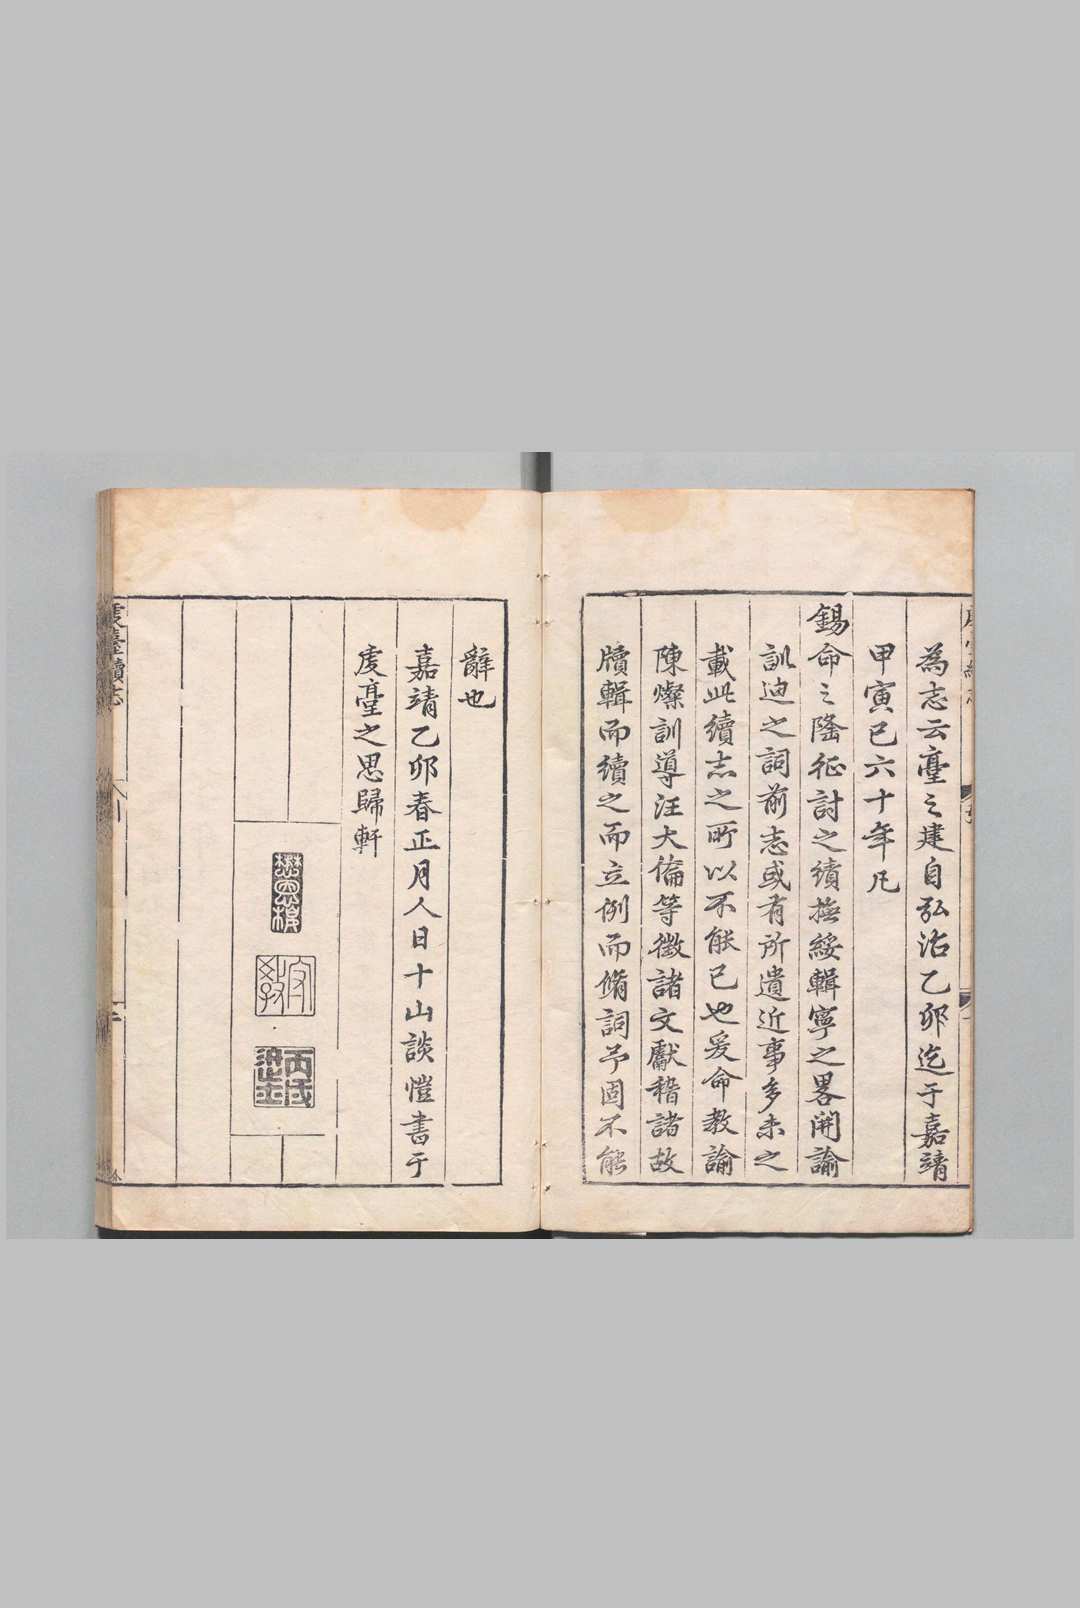 為志云臺之建自弘治乙卯迄于嘉靖
甲寅已六十年凡
錫命之隆征討之績撫綏輯寧之畧開諭
訓迪之詞前志或有所遺近事多未之
載此續志之所以不能已也爰命教諭
陳燦訓導汪大倫等徵諸文獻稽諸故
牘輯而續之而立例而脩詞予固不能
辭也
嘉靖乙卯春正月人日十山談愷書于
虔臺之思歸軒
虔臺續志